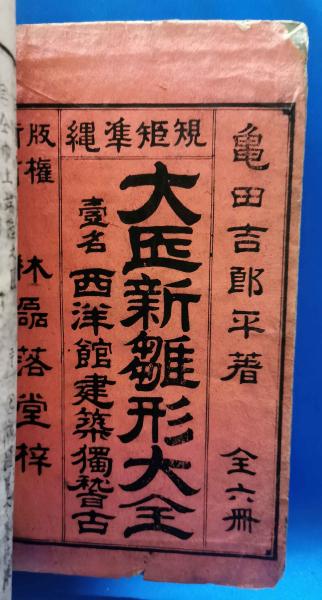 亀田吉郎平著 全六冊
規矩凖縄
大匠新雛形大全
壹名 西洋館建築獨稽古
版權
林磊落堂梓